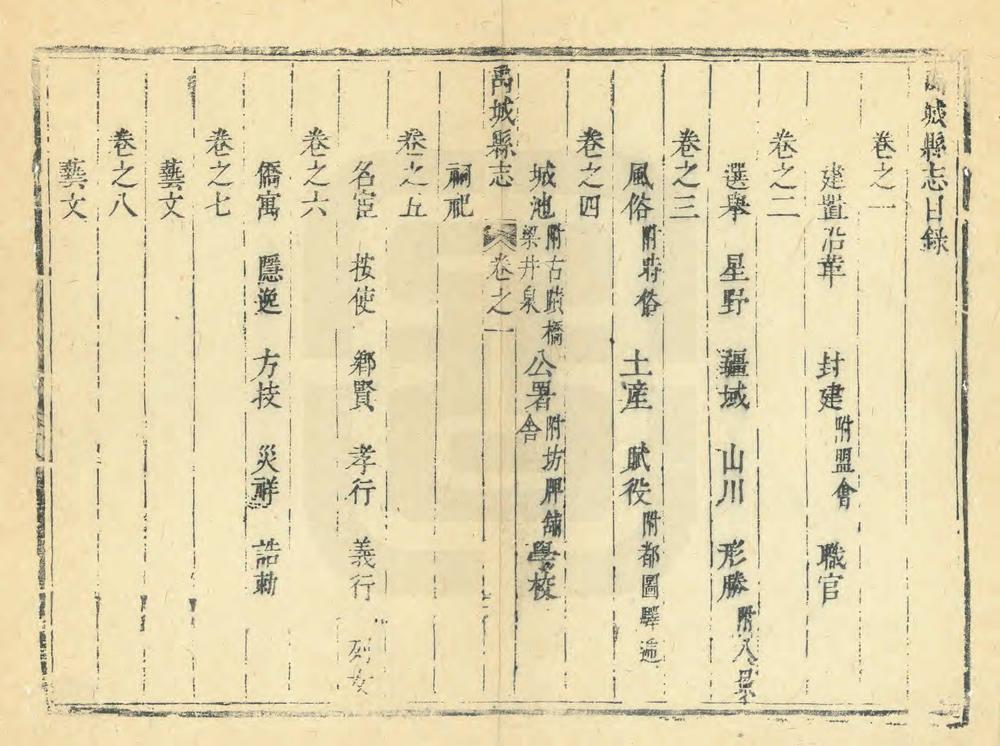 禹城縣志目錄
卷之一
建置沿革 封建附盟會 職官
卷之二
選舉 星野 疆域 山川 形勝附八景
卷之三
風俗附時俗 土產 賦役附都圖驛遞
卷之四
城池附古蹟橋梁井泉 公署附坊牌舖舍 學校
禹城縣志 卷之一
祠祀
卷之五
名宦 按使 鄉賢 孝行 義行 列女
卷之六
僑寓 隱逸 方技 災祥 誥勅
卷之七
藝文
卷之八
藝文